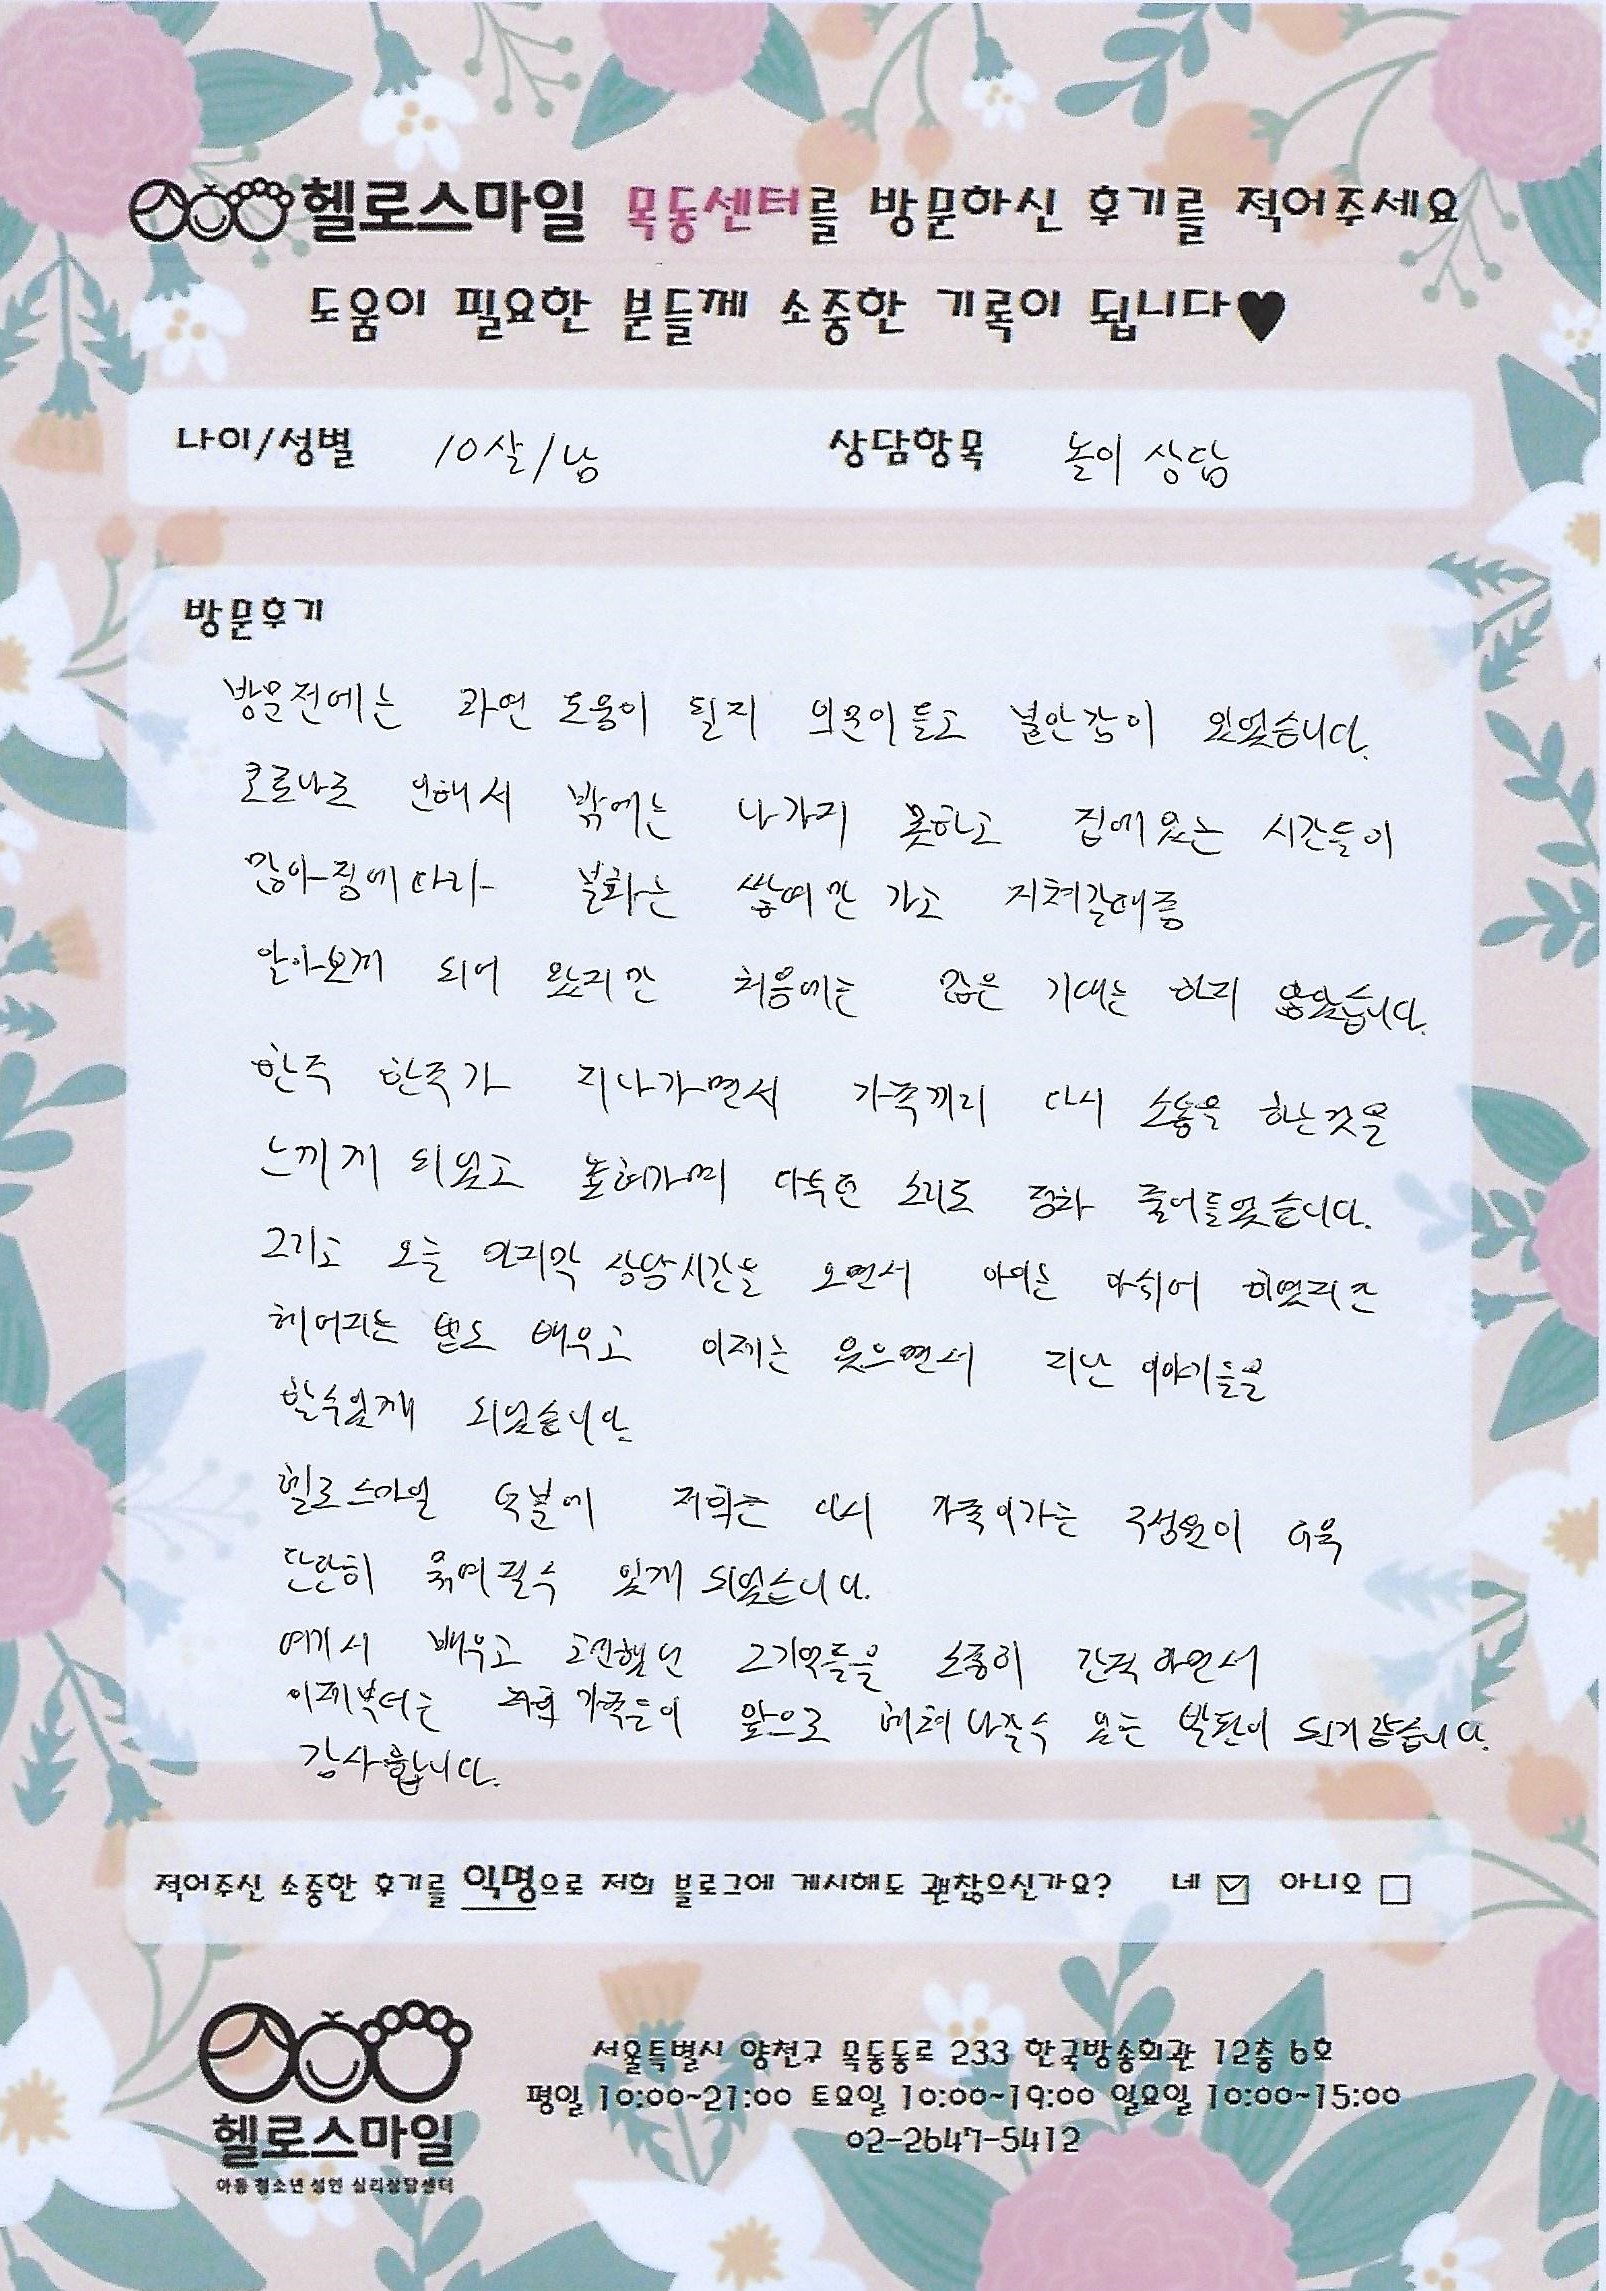 헬로스마일 목동센터를 방문하신 후기를 적어주세요
도움이 필요한 분들께 소중한 기록이 됩니다♥
나이/성별 10살/남 상담항목 놀이 상담
방문후기
방문전에는 과연 도움이 될지 의문이 들고 불안감이 있었습니다.
코로나로 인해서 밖에는 나가지 못하고 집에 있는 시간들이
많아짐에 따라 불화는 쌓여만 가고 지쳐갈때쯤
알아보게 되어 왔지만 처음에는 깊은 기대는 하지 않았습니다.
한주 한주가 지나가면서 가족끼리 다시 소통을 하는것을
느끼게 되었고 높혀가며 다투던 소리도 점차 줄어들었습니다.
그리고 오늘 마지막 상담시간을 오면서 아이는 아쉬어 하였지만
헤어지는 법도 배우고 이제는 웃으면서 지난 이야기들을
할수있게 되었습니다
헬로스마일 덕분에 저희는 다시 가족이라는 구성원이 더욱
단단히 묶여질수 있게 되었습니다.
여기서 배우고 고민했던 그기억들을 소중히 간직하면서
이제부터는 저희 가족들이 앞으로 헤쳐나갈수 있는 발판이 된거같습니다.
감사합니다.
적어주신 소중한 후기를 익명으로 저희 블로그에 게시해도 괜찮으신가요? 네 ☑ 아니오 ☐
헬로스마일
아동 청소년 성인 심리상담센터
서울특별시 양천구 목동동로 233 한국방송회관 12층 6호
평일 10:00~21:00 토요일 10:00~19:00 일요일 10:00~15:00
02-2647-5412